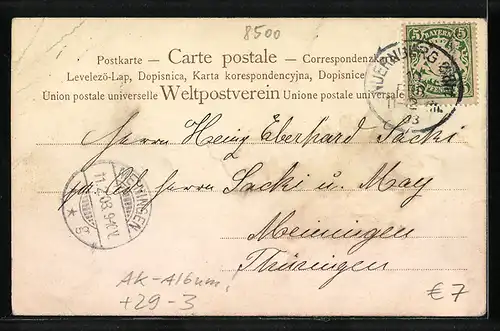 8500
Postkarte — Carte postale — Correspondenzkarte
Levelező-Lap, Dopisnica, Karta korespondencyjna, Dopisnice
Union postale universelle Weltpostverein Unione postale universale
5 BAYERN 5
NUERNBERG
11-12
03
Herrn Heinz Eberhard Sacki
Herrn Sacki u. May
MEININGEN
11.2.03. 9-10V.
* g *
Meiningen
Thüringen
AK-Album!
+29-3
€7